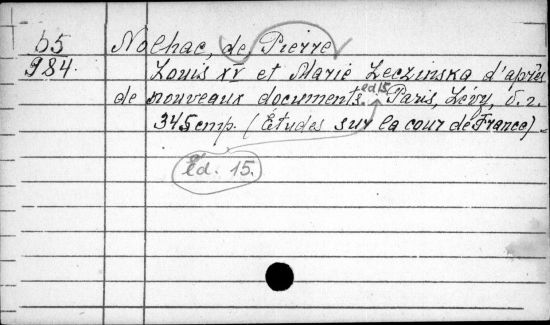 b5 Nolhac, de Pierre
984. Louis XV et Marie Leczinska d'après
de nouveaux documents. ed 15. Paris, Lévy, б. г.
345 стр. (Études sur la cour de France)
éd. 15.